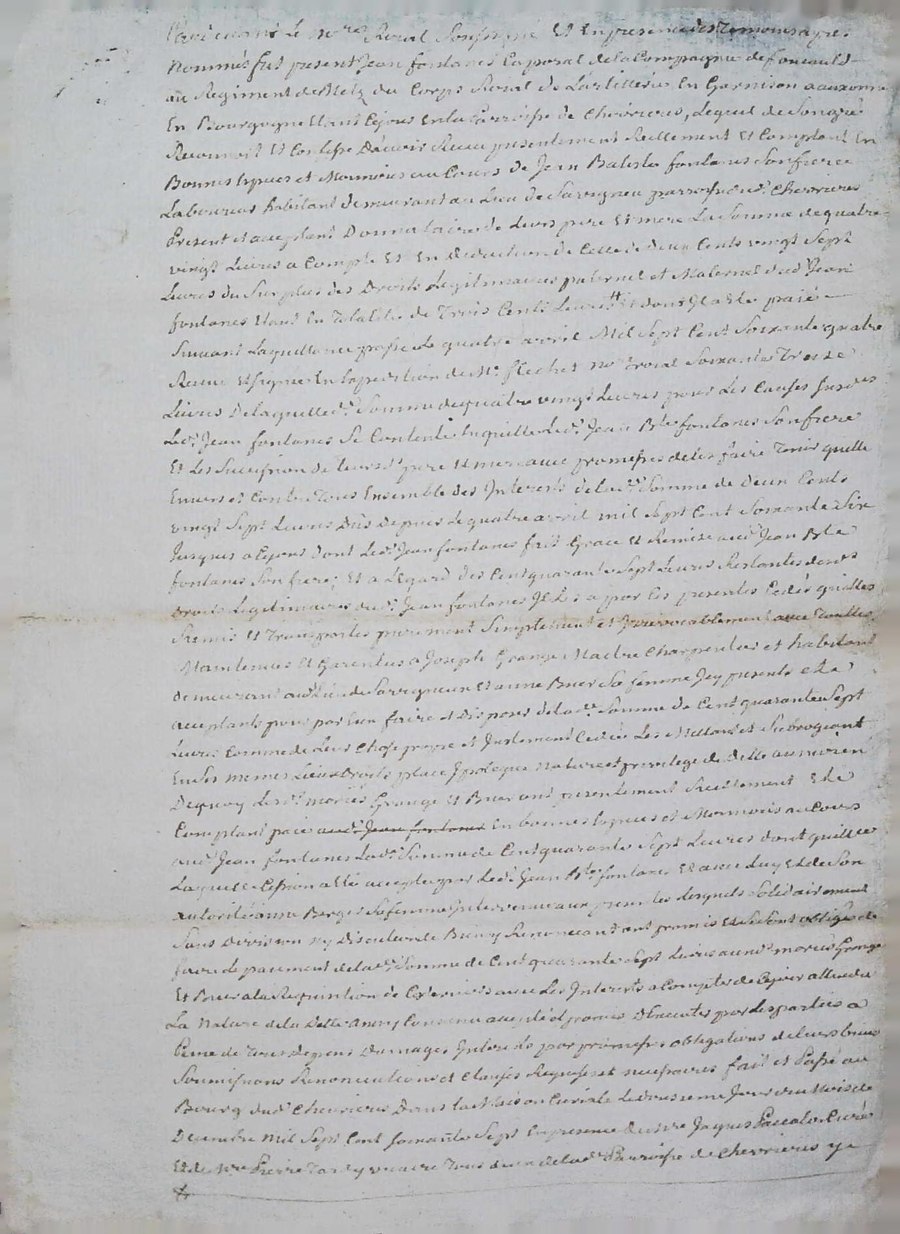 Pardevant le no.re Royal Soussigné Et En presence des Temoins apres
Nommés fut present Jean fontanes Caporal de la Compagnie de foucauld
au Regiment de Metz du Corps Royal de L'artillerie En Garnison a auxonne
En Bourgogne Etant Cejour En la parroisse de Chevrieres, Lequel de Son gré
Reconnoit Et Confesse D'avoir Receu presentement Reellement Et Comptant En
Bonnes Especes et Monnoies au Cours de Jean Batiste fontanes Son frere
Laboureur habitant demeurant au Lieu de Savigneu parroisse de Chevrieres
Present et acceptant Donnataire de Leurs pere Et mere La Somme de quatre
vingt Livres a Compte Et En Deduction de Celle de deux Cents vingt Sept
Livres du Surplus des Droits Legitimaires paternel et Maternel dud. Jean
fontanes Etant En Totalité de Trois Cents Livres Et dont Il a Eté paié
Suivant La quittance passée Le quatre avril Mil Sept Cent Soixante quatre
Receue Et Signée En Expedition de Me. flechet no.re Royal Soixante Treize
Livres De laquelle d. Somme de quatre vingt Livres pour Les Causes Susd.es
Led. Jean fontanes Se Contente En quitte Led. Jean Bte. fontanes Son frere
Et Les Succession de Leurs d. pere Et mere avec promesses de les faire Tenir quitte
Envers et Contre Tous Ensemble des Interets de lad. Somme de Deux Cents
vingt Sept Livres Dûs Depuis Le quatre avril mil Sept Cent Soixante Six
Jusques a Cejour dont Led. Jean fontanes fait Grace Et Remise aud. Jean Bte
fontanes Son frere; Et a L'Egard des Cent quarante Sept Livres Restantes desd.s
Droits Legitimaires dud. Jean fontanes Il Les a par Ces presentes Cedés quittés
Remis Et Transportés purement Simplement et Irrevocablement avec Toutes
Maintenues Et Garenties a Joseph Grange Maitre Charpentier et habitant
demeurant aud. Lieu de Savigneu Et anne Bruer Sa femme Icy presents Et
acceptants pour par Eux faire et Disposer de lad. Somme de Cent quarante Sept
Livres Comme de Leur Chose propre et Justement Cedée Les Mettant et Subrogeant
En Ses memes Lieux Droits place Ipoteque Nature et privilege de Dette au moien
De quoy Lesd. mariés Grange Et Bruer ont presentement Reellement Et
Comptant paié aud. Jean fontanes En bonnes Especes et Monnois au Cours
aud. Jean fontanes Lad. Somme de Cent quarante Sept Livres dont quitte
Laquelle Cession a Eté acceptée par Led. Jean Bte. fontanes Et avec Luy Et de Son
autorité anne Berger Sa femme Intervenue aux presentes Lesquels Solidairement
Sans Division ny Discution de Biens y Renonceant ont promis Et Se Sont obligés de
faire Le paiement de lad. Somme de Cent quarante Sept Livres auxd. mariés Grange
Et Bruer a La Requisition de Ces derniers avec Les Interets a Compter de Cejour attendu
La Nature de la Dette ainsy Convenu accepté et promis D'Executer par Les parties a
Peine de Tous Depens Dommages Interets par promesses obligations de leurs biens
Soumissions Renonciations et Clauses Requises et necessaires fait Et Passé au
Bourg dud. Chevrieres Dans la Maison Curiale Le douzieme Jour du Mois de
Decembre Mil Sept Cent Soixante Sept En presence de Sire Jaques Pascal Curé
Et de Me. Pierre Tardy vicaire Tous deux de lad. Parroisse de Chevrieres